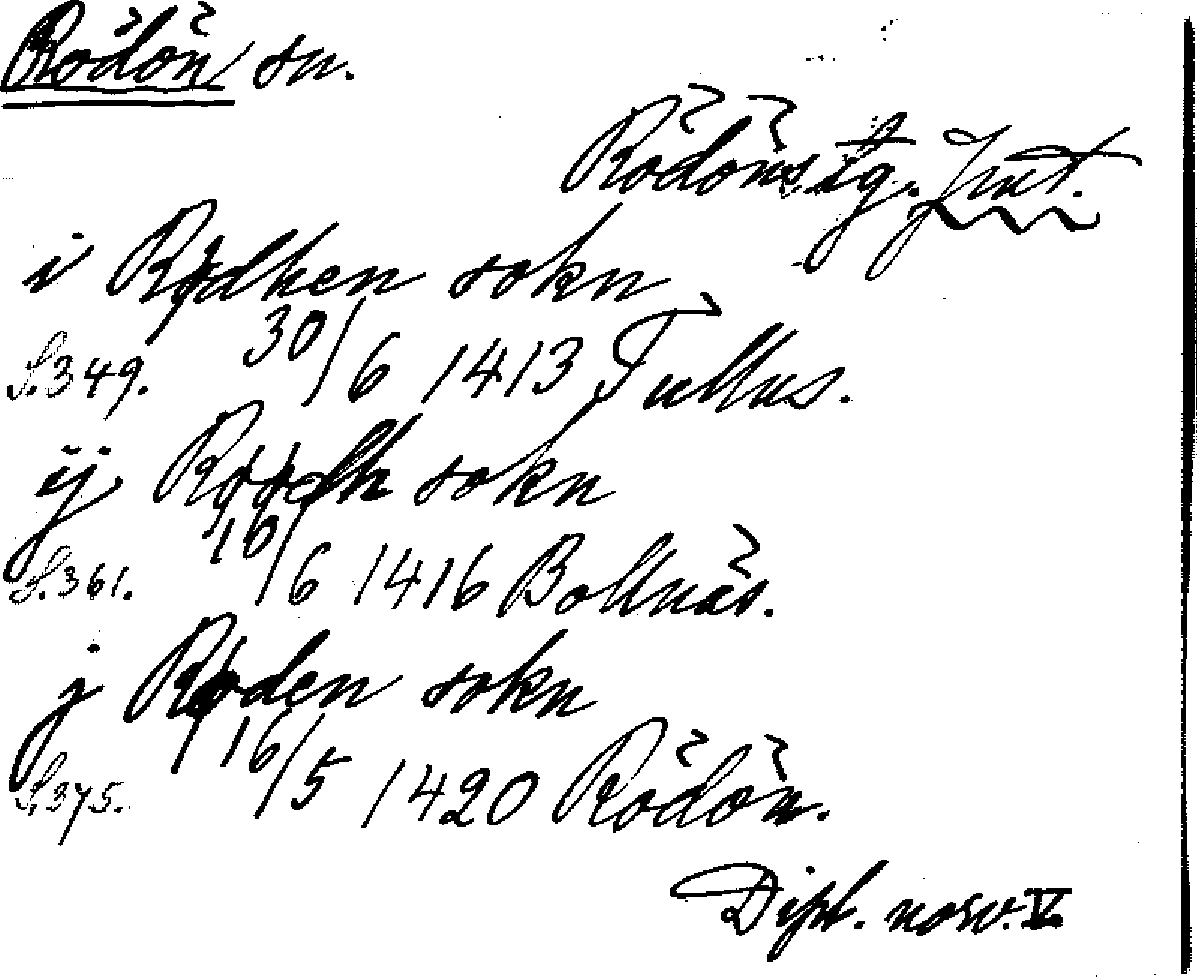 Rödön sn.
Rödöns tg. Jmt.
i Rødhen sokn
S.349. 30/6 1413 Tullus.
ij Røødh sokn
S.361. 10/6 1416 Bollnäs.
j Røden sokn
S.375. 16/5 1420 Rödön.
Dipl. norv. V.